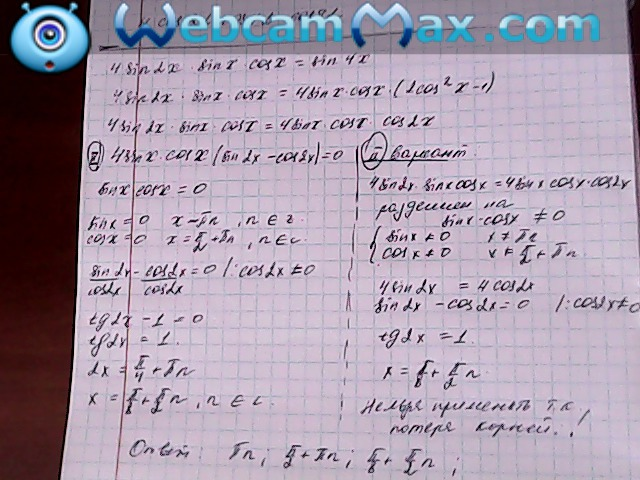 WebcamMax.com
4 sin 2x · sin x cos x = sin 4x
4 sin 2x · sin x · cos x = 4 sin x · cos x · (2cos² x - 1)
4 sin 2x · sin x · cos x = 4 sin x · cos x · cos 2x
I 4 sin x · cos x (sin 2x - cos 2x) = 0
sin x cos x = 0
sin x = 0 x = πn, n ∈ z
cos x = 0 x = π/2 + πn, n ∈ z
sin 2x/cos 2x - cos 2x/cos 2x = 0 /: cos 2x ≠ 0
tg 2x - 1 = 0
tg 2x = 1
2x = π/4 + πn
x = π/8 + π/2 n, n ∈ z
II вариант.
4 sin 2x · sin x cos x = 4 sin x cos x · cos 2x
разделим на
sin x · cos x ≠ 0
{ sin x ≠ 0 x ≠ πn
{ cos x ≠ 0 x ≠ π/2 + πn
4 sin 2x = 4 cos 2x
sin 2x - cos 2x = 0 /: cos 2x ≠ 0
tg 2x = 1.
x = π/8 + π/2 n.
Нельзя применять т.к.
потеря корней..!
Ответ: πn; π/2 + πn; π/8 + π/2 n;